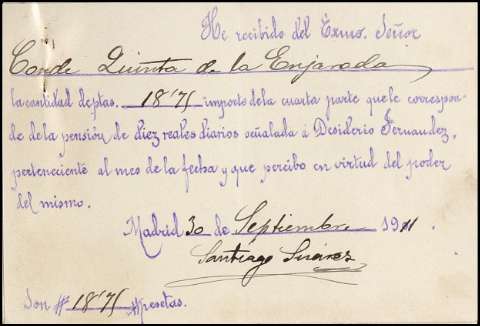 He recibido del Exmo. Señor
Conde Quinta de la Enjarada
la cantidad de ptas. 18'75 importe de la cuarta parte que le correspon-
de de la pensión de diez reales diarios señalada á Desiderio Fernandez,
perteneciente al mes de la fecha y que percibo en virtud del poder
del mismo.
Madrid 30 de Septiembre 1911
Santiago Suárez
Son # 18'75 # pesetas.